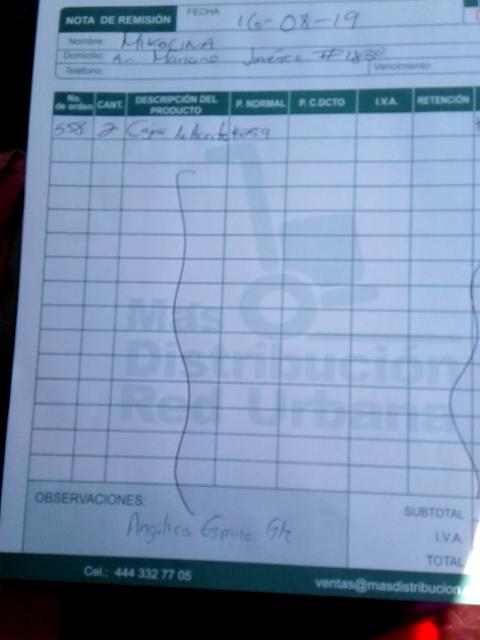 NOTA DE REMISIÓN FECHA 16-08-19
Nombre: MIKOCINA
Domicilio: Av. Mariano Jiménez #1830
Teléfono: Vencimiento:
No. de orden CANT. DESCRIPCIÓN DEL PRODUCTO P. NORMAL P. C.DCTO I.V.A. RETENCIÓN
558 2 Cajas de Aceite $259
Más
Distribución
Red Urbana
OBSERVACIONES:
Angélica Espino
SUBTOTAL
I.V.A.
TOTAL
Cel.: 444 332 77 05 ventas@masdistribucion.